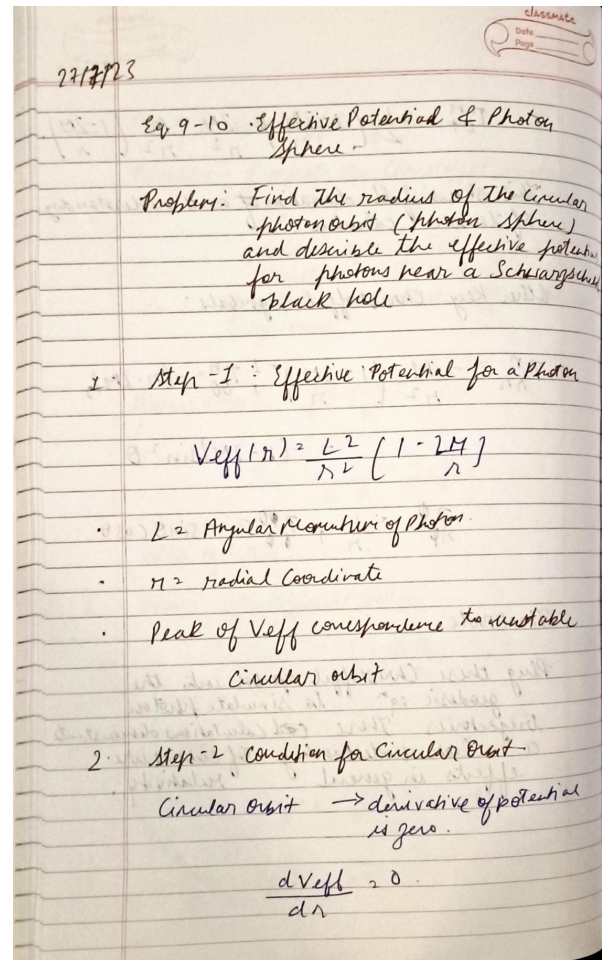 classmate
Date
Page
27/7/23
Eq 9-10 · Effective Potential & Photon
Sphere -
Problem: Find the radius of the Circular
photon orbit (photon sphere)
and describe the effective potential
for photons near a Schwarzschild
black hole
1 Step-1 : Effective Potential for a Photon
Veff(r) = L²/r² (1 - 2M/r)
· L = Angular Momentum of Photon.
· r = radial Coordinate
· Peak of Veff correspondence to unstable
Circular orbit
2. Step-2 Condition for Circular Orbit
Circular orbit → derivative of potential
is zero.
dVeff/dr = 0